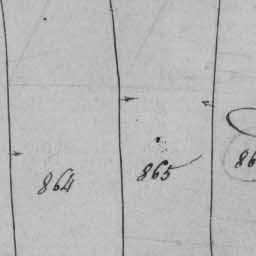 864 865 86